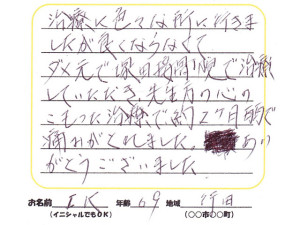 治療に色々な所に行きま
したが良くならなくて
ダメ元で 治療
していただき、先生方の心の
こもった治療で約2ヶ月弱で
痛みがとれました。 あり
がとうございました
お名前 I K 年齢 69 地域 行田
(イニシャルでもOK) (○○市○○町)